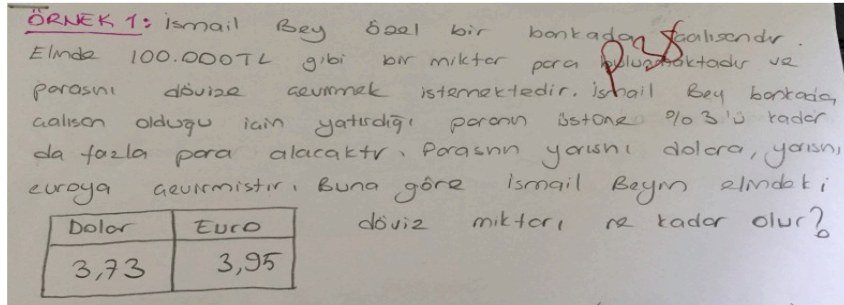 ÖRNEK 1: İsmail Bey özel bir bankadan çalışandır.
Elinde 100.000TL gibi bir miktar para bulunmaktadır ve
parasını dövize çevirmek istemektedir. İsmail Bey bankada,
çalışan olduğu için yatırdığı paranın üstüne %3'ü kadar
da fazla para alacaktır. Parasının yarısını dolara, yarısnı
euroya çevirmiştir. Buna göre İsmail Beyin elindeki
döviz miktarı ne kadar olur?
Dolar Euro
3,73 3,95